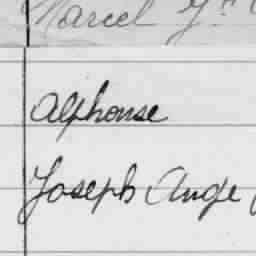 Marcel J.
Alphonse
Joseph Ange